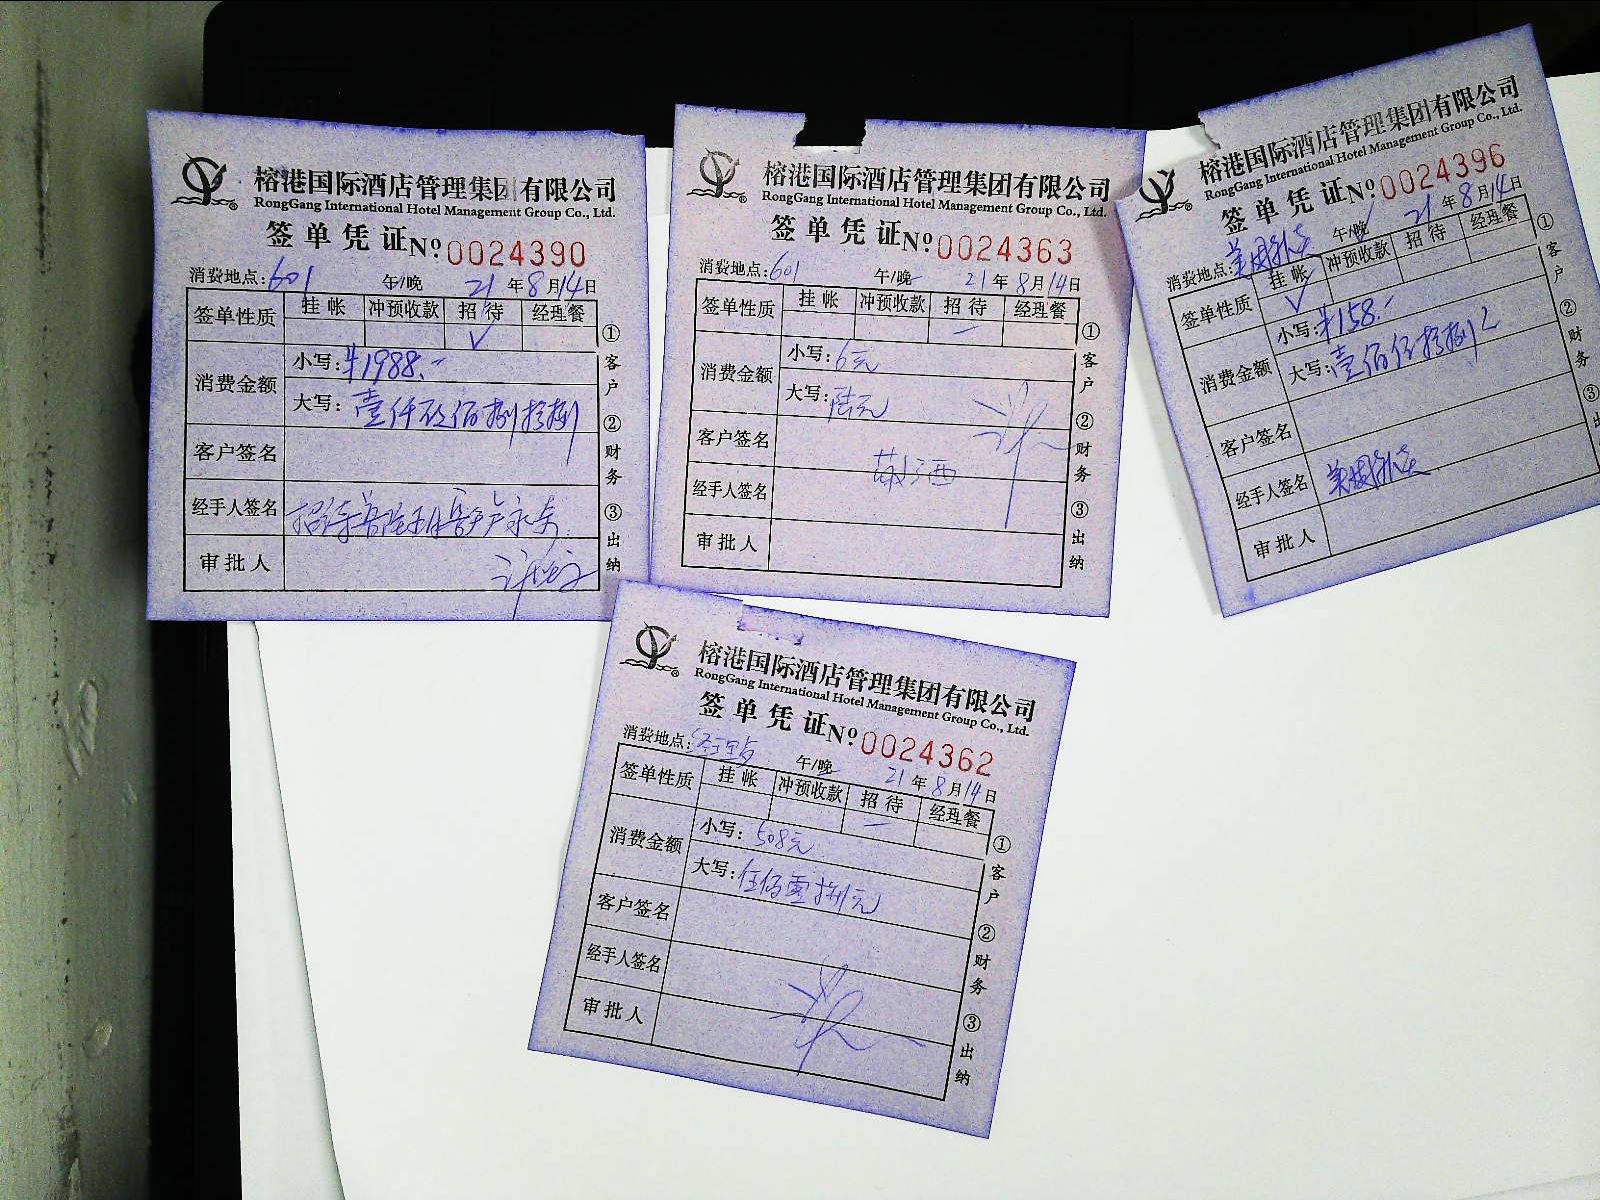 榕港国际酒店管理集团有限公司
RongGang International Hotel Management Group Co., Ltd.
签单凭证 Nº 0024390
消费地点：601 午/晚 21年8月14日
签单性质 挂帐 冲预收款 招待 经理餐
✓
消费金额 小写：¥1988.-
大写：壹仟玖佰捌拾捌
客户签名
经手人签名
审批人
①客户 ②财务 ③出纳
榕港国际酒店管理集团有限公司
RongGang International Hotel Management Group Co., Ltd.
签单凭证 Nº 0024363
消费地点：601 午/晚 21年8月14日
签单性质 挂帐 冲预收款 招待 经理餐
消费金额 小写：6元
大写：陆元
客户签名
经手人签名
审批人
①客户 ②财务 ③出纳
榕港国际酒店管理集团有限公司
RongGang International Hotel Management Group Co., Ltd.
签单凭证 Nº 0024396
消费地点： 午/晚 21年8月14日
签单性质 挂帐 冲预收款 招待 经理餐
✓
消费金额 小写：¥158.-
大写：壹佰伍拾捌
客户签名
经手人签名
审批人
①客户 ②财务 ③出
榕港国际酒店管理集团有限公司
RongGang International Hotel Management Group Co., Ltd.
签单凭证 Nº 0024362
消费地点： 午/晚 21年8月14日
签单性质 挂帐 冲预收款 招待 经理餐
消费金额 小写：508元
大写：伍佰零捌元
客户签名
经手人签名
审批人
①客户 ②财务 ③出纳